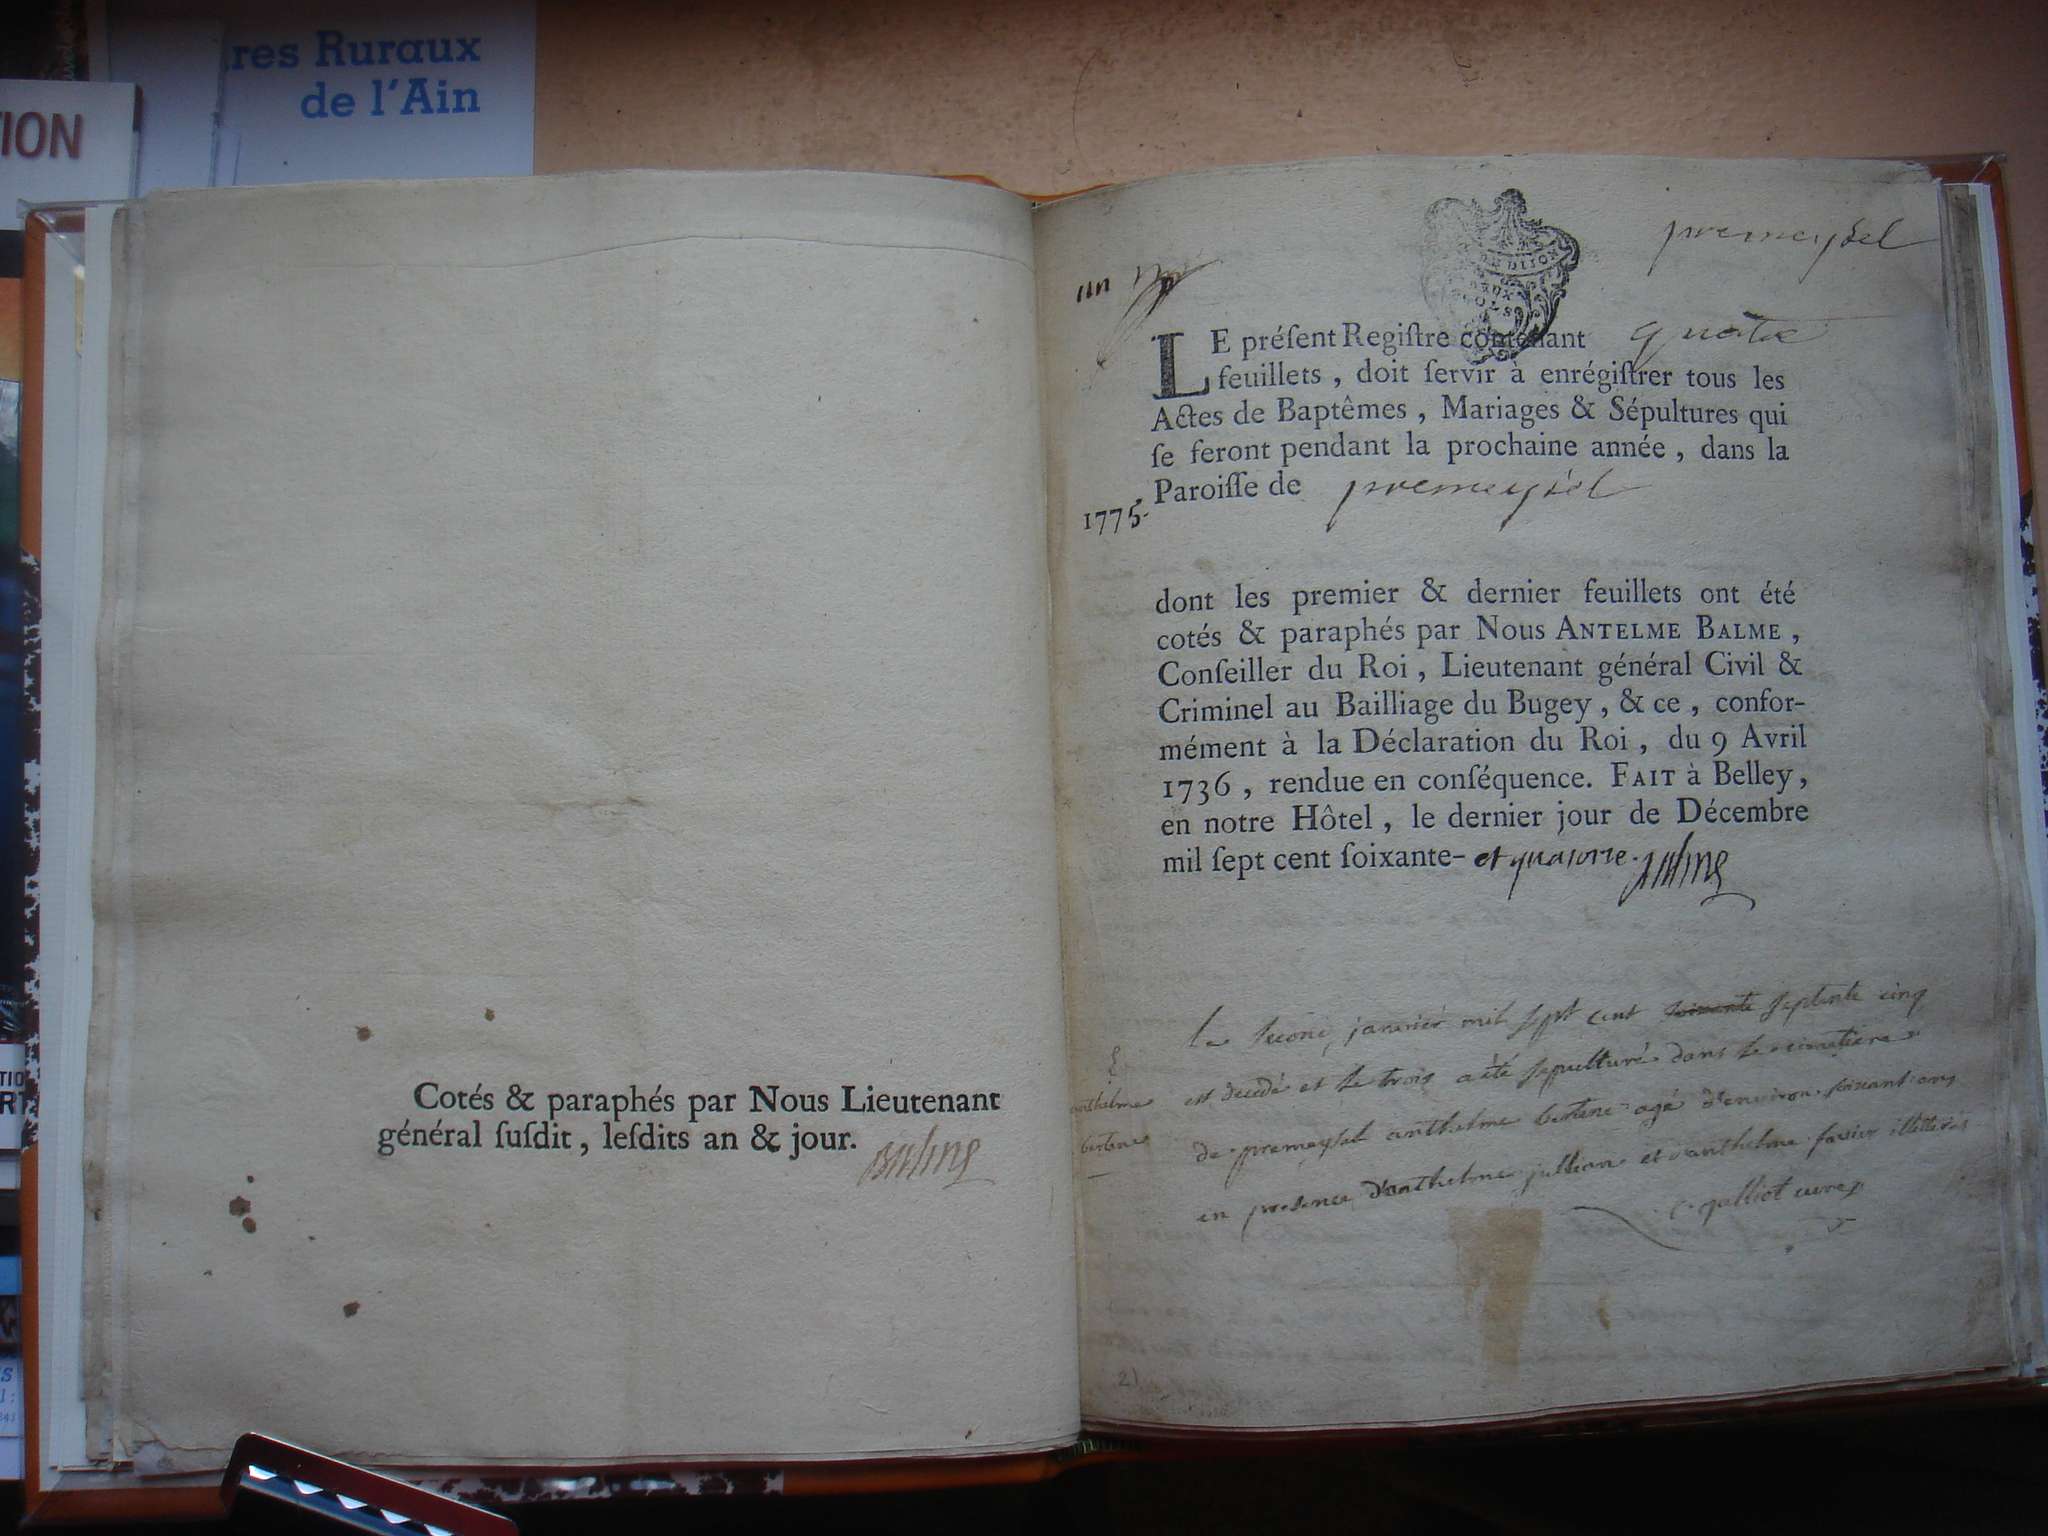 res Ruraux
de l'Ain
TION
Cotés & paraphés par Nous Lieutenant
général ſuſdit, leſdits an & jour.
premeysel
un
LE préſent Regiſtre contenant quatre
feuillets, doit ſervir à enrégiſtrer tous les
Actes de Baptêmes, Mariages & Sépultures qui
ſe feront pendant la prochaine année, dans la
Paroiſſe de premeysel
1775.
dont les premier & dernier feuillets ont été
cotés & paraphés par Nous ANTELME BALME,
Conſeiller du Roi, Lieutenant général Civil &
Criminel au Bailliage du Bugey, & ce, confor-
mément à la Déclaration du Roi, du 9 Avril
1736, rendue en conſéquence. FAIT à Belley,
en notre Hôtel, le dernier jour de Décembre
mil ſept cent ſoixante- et quatorze.
Le second janvier mil sept cent soixante septente cinq
est decedé et le trois a été sepulturé dans le cimetiere
de premeysel anthelme bertene agé d'environ soixant ans
en presence d'anthelme jullion et d'anthelme illetterés
c. galliot curé
anthelme
bertene
21